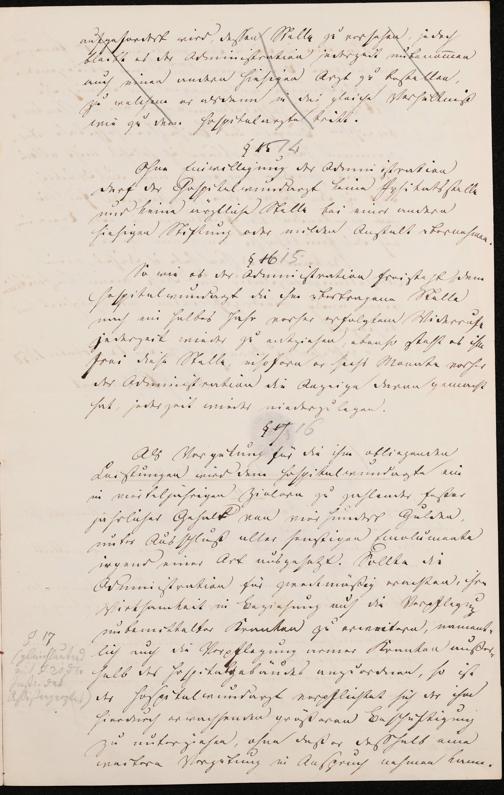 aufgefordert wird, dessen Stelle zu versehen, jedoch
bleibt es der Administration jederzeit unbenommen
auch einen andern hiesigen Arzt zu bestellen,
zu welchem er alsdann in das gleiche Verhältniß
wie zu dem Hospitalarzte tritt.
§ 15 14
Ohne Einwilligung der Administration
darf der Hospitalwundarzt keine Physikatsstelle
und keine ärztliche Stelle bei einer andern
hiesigen Stiftung oder milden Anstalt übernehmen.
§ 16 15
So wie es der Administration freisteht, dem
Hospitalwundarzt die ihm übertragene Stelle
nach ein halbes Jahr vorher erfolgtem Widerrufe
jederzeit wieder zu entziehen, ebenso steht es ihm
frei diese Stelle, insofern er sechs Monate vorher
der Administration die Anzeige davon gemacht
hat, jederzeit wieder niederzulegen.
§ 17 16
Als Vergütung für die ihm obliegenden
Leistungen wird dem Hospitalwundarzte ein
in vierteljährigen Zielern zu zahlender fester
jährlicher Gehalt von vierhundert Gulden,
unter Ausschluß aller sonstigen Emolumente
irgend einer Art ausgesetzt. Sollte die
Administration für zweckmäßig erachten, ihre
Wirksamkeit in Beziehung auf die Verpflegung
unbemittelter Kranken zu erweitern, nament-
lich auch die Verpflegung armer Kranken außer-
halb des Hospitalgebäudes anzuordnen, so ist
der Hospitalwundarzt verpflichtet sich der ihm
hierdurch erwachsenden größeren Beschäftigung
zu unterziehen, ohne daß er deßhalb eine
weitere Vergütung in Anspruch nehmen kann.
§ 17
gleichlautend